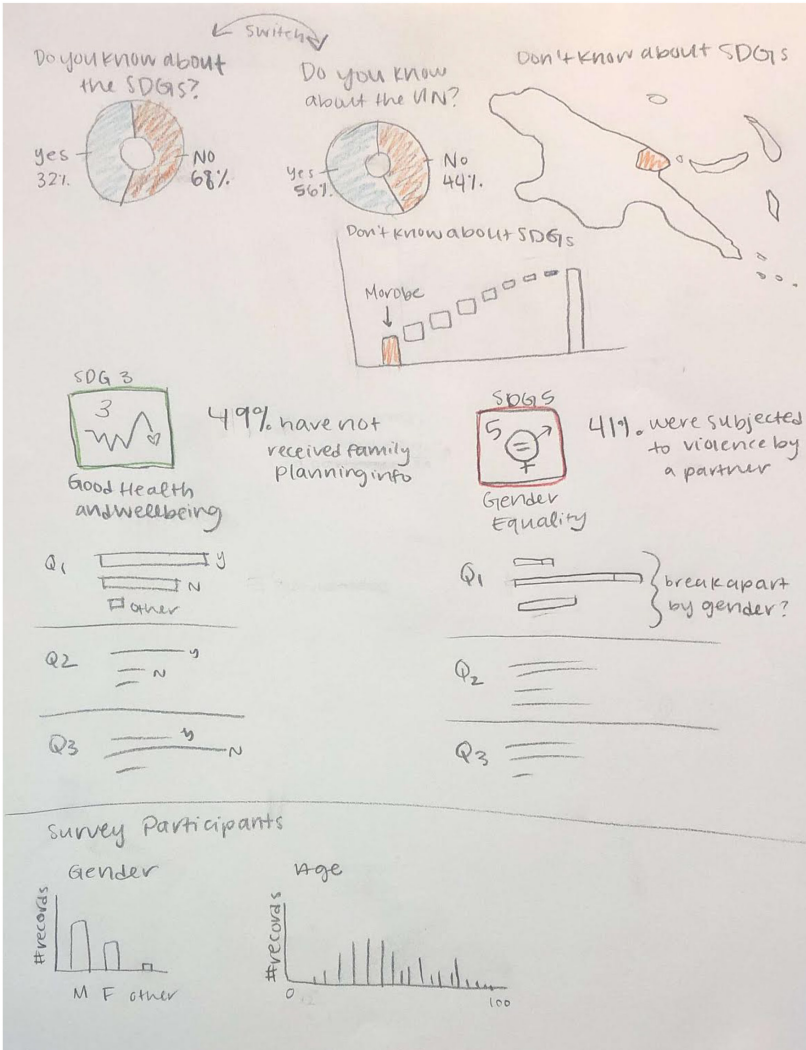 switch
Do you know about
the SDGs?
yes
32%
No
68%
Do you know
about the UN?
yes
56%
No
44%
Don't know about SDGs
Don't know about SDGs
Morobe
SDG 3
3
Good Health
and wellbeing
49% have not
received family
planning info
SDG 5
5
Gender
Equality
41% were subjected
to violence by
a partner
Q1
Y
N
other
Q2
y
N
Q3
y
N
Q1
break apart
by gender?
Q2
Q3
Survey Participants
Gender
#records
M F other
Age
#records
0
100